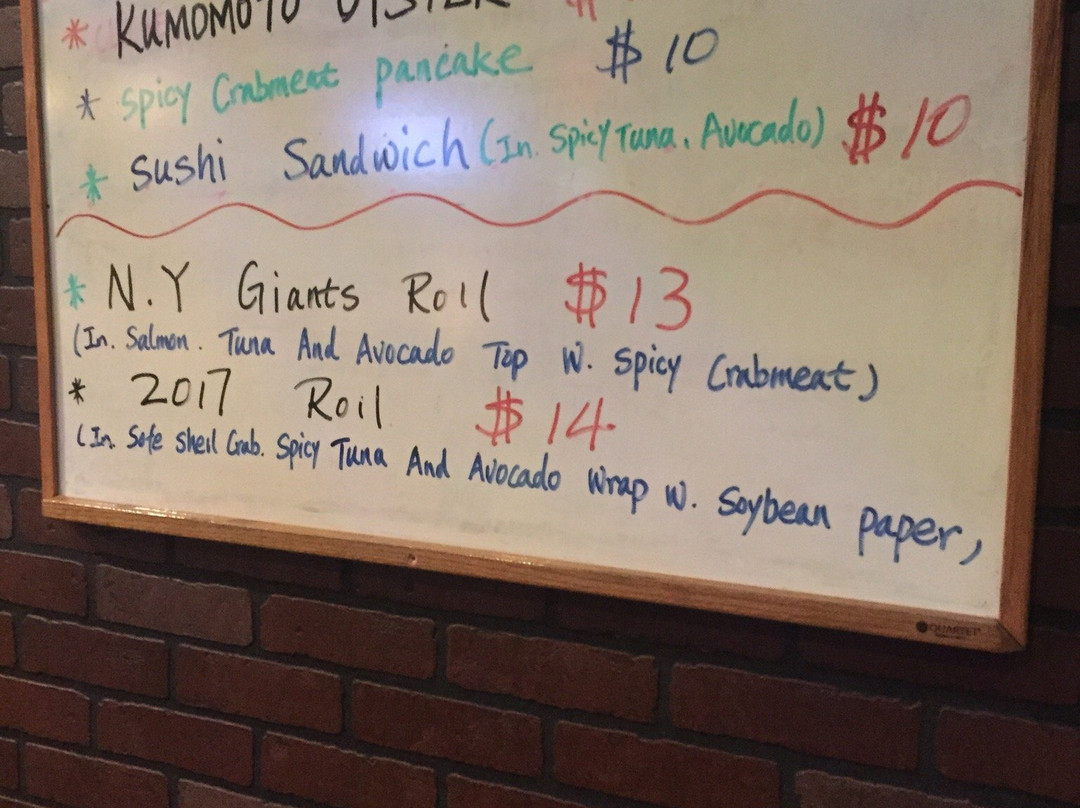 * KUMOMOTO OYSTER $
* Spicy Crabmeat pancake $ 10
* Sushi Sandwich (In. Spicy Tuna. Avocado) $ 10
* N.Y Giants Roll $ 13
(In. Salmon. Tuna And Avocado Top W. Spicy Crabmeat)
* 2017 Roll $ 14
(In. Sofe Shell Crab. Spicy Tuna And Avocado Wrap W. Soybean paper,
QUARTET